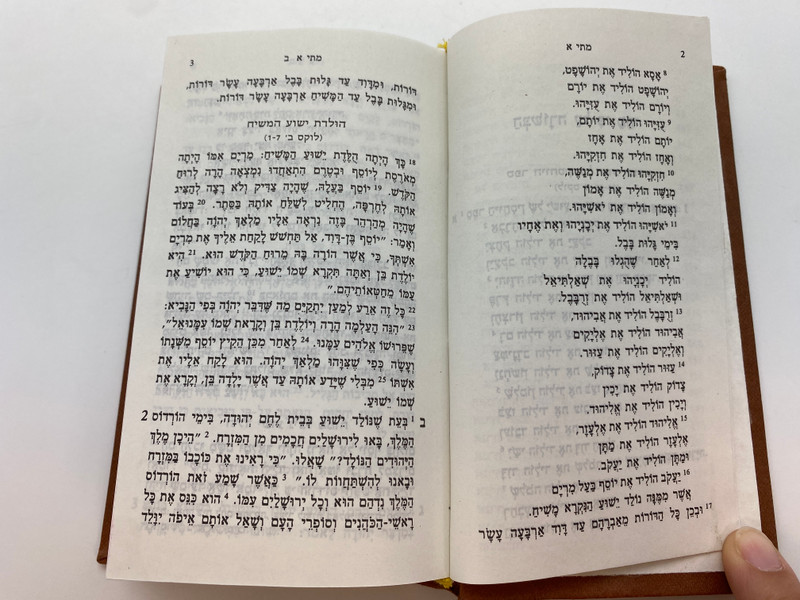 2
מתי א
8 אָסָא הוֹלִיד אֶת יְהוֹשָׁפָט,
יְהוֹשָׁפָט הוֹלִיד אֶת יוֹרָם
וְיוֹרָם הוֹלִיד אֶת עֻזִּיָּהוּ.
9 עֻזִּיָּהוּ הוֹלִיד אֶת יוֹתָם,
יוֹתָם הוֹלִיד אֶת אָחָז
וְאָחָז הוֹלִיד אֶת חִזְקִיָּהוּ.
10 חִזְקִיָּהוּ הוֹלִיד אֶת מְנַשֶּׁה,
מְנַשֶּׁה הוֹלִיד אֶת אָמוֹן
וְאָמוֹן הוֹלִיד אֶת יֹאשִׁיָּהוּ.
11 יֹאשִׁיָּהוּ הוֹלִיד אֶת יְכָנְיָהוּ וְאֶת אֶחָיו
בִּימֵי גָּלוּת בָּבֶל.
12 לְאַחַר שֶׁהֻגְלוּ בָּבֶלָה
הוֹלִיד יְכָנְיָהוּ אֶת שְׁאַלְתִּיאֵל
וּשְׁאַלְתִּיאֵל הוֹלִיד אֶת זְרֻבָּבֶל.
13 זְרֻבָּבֶל הוֹלִיד אֶת אֲבִיהוּד,
אֲבִיהוּד הוֹלִיד אֶת אֶלְיָקִים
וְאֶלְיָקִים הוֹלִיד אֶת עַזּוּר.
14 עַזּוּר הוֹלִיד אֶת צָדוֹק,
צָדוֹק הוֹלִיד אֶת יָכִין
וְיָכִין הוֹלִיד אֶת אֱלִיהוּד.
15 אֱלִיהוּד הוֹלִיד אֶת אֶלְעָזָר,
אֶלְעָזָר הוֹלִיד אֶת מַתָּן
וּמַתָּן הוֹלִיד אֶת יַעֲקֹב.
16 יַעֲקֹב הוֹלִיד אֶת יוֹסֵף בַּעַל מִרְיָם
אֲשֶׁר מִמֶּנָּה נוֹלַד יֵשׁוּעַ הַנִּקְרָא מָשִׁיחַ.
17 וּבְכֵן כָּל הַדּוֹרוֹת מֵאַבְרָהָם עַד דָּוִד אַרְבָּעָה עָשָׂר
מתי א ב
3
דּוֹרוֹת, וּמִדָּוִד עַד גָּלוּת בָּבֶל אַרְבָּעָה עָשָׂר דּוֹרוֹת,
וּמִגָּלוּת בָּבֶל עַד הַמָּשִׁיחַ אַרְבָּעָה עָשָׂר דּוֹרוֹת.
הולדת ישוע המשיח
(לוקס ב׳ 1-7)
18 כָּךְ הָיְתָה הֻלֶּדֶת יֵשׁוּעַ הַמָּשִׁיחַ: מִרְיָם אִמּוֹ הָיְתָה
מְאֹרֶסֶת לְיוֹסֵף וּבְטֶרֶם הִתְאַחֲדוּ נִמְצְאָה הָרָה לְרוּחַ
הַקֹּדֶשׁ. 19 יוֹסֵף בַּעֲלָהּ, שֶׁהָיָה צַדִּיק וְלֹא רָצָה לְהַצִּיג
אוֹתָהּ לְחֶרְפָּה, הֶחְלִיט לְשַׁלֵּחַ אוֹתָהּ בַּסֵּתֶר. 20 בְּעוֹד
שֶׁהָיָה מְהַרְהֵר בָּזֶה נִרְאָה אֵלָיו מַלְאַךְ יְהֹוָה בַּחֲלוֹם
וְאָמַר: ״יוֹסֵף בֶּן-דָּוִד, אַל תַּחְשֹׁשׁ לָקַחַת אֵלֶיךָ אֶת מִרְיָם
אִשְׁתְּךָ, כִּי אֲשֶׁר הוֹרָה בָּהּ מֵרוּחַ הַקֹּדֶשׁ הוּא. 21 הִיא
יוֹלֶדֶת בֵּן וְאַתָּה תִּקְרָא שְׁמוֹ יֵשׁוּעַ, כִּי הוּא יוֹשִׁיעַ אֶת
עַמּוֹ מֵחַטֹּאותֵיהֶם.״
22 כָּל זֶה אֵרַע לְמַעַן יִתְקַיֵּם מַה שֶּׁדִּבֵּר יְהֹוָה בְּפִי הַנָּבִיא:
23 ״הִנֵּה הָעַלְמָה הָרָה וְיוֹלֶדֶת בֵּן וְקָרָאת שְׁמוֹ עִמָּנוּאֵל״,
שֶׁפֵּרוּשׁוֹ אֱלֹהִים עִמָּנוּ. 24 לְאַחַר מִכֵּן הֵקִיץ יוֹסֵף מִשְּׁנָתוֹ
וְעָשָׂה כְּפִי שֶׁצִּוָּהוּ מַלְאַךְ יְהֹוָה. הוּא לָקַח אֵלָיו אֶת
אִשְׁתּוֹ 25 מִבְּלִי שֶׁיָּדַע אוֹתָהּ עַד אֲשֶׁר יָלְדָה בֵּן, וְקָרָא אֶת
שְׁמוֹ יֵשׁוּעַ.
ב 1 בְּעֵת שֶׁנּוֹלַד יֵשׁוּעַ בְּבֵית לֶחֶם יְהוּדָה, בִּימֵי הוֹרְדוֹס 2
הַמֶּלֶךְ, בָּאוּ לִירוּשָׁלַיִם חֲכָמִים מִן הַמִּזְרָח. 2 ״הֵיכָן מֶלֶךְ
הַיְּהוּדִים הַנּוֹלָד?״ שָׁאֲלוּ. ״כִּי רָאִינוּ אֶת כּוֹכָבוֹ בַּמִּזְרָח
וּבָאנוּ לְהִשְׁתַּחֲווֹת לוֹ.״ 3 כַּאֲשֶׁר שָׁמַע זֹאת הוֹרְדוֹס
הַמֶּלֶךְ נִדְהַם הוּא וְכָל יְרוּשָׁלַיִם עִמּוֹ. 4 הוּא כִּנֵּס אֶת כָּל
רָאשֵׁי-הַכֹּהֲנִים וְסוֹפְרֵי הָעָם וְשָׁאַל אוֹתָם אֵיפֹה יִוָּלֵד